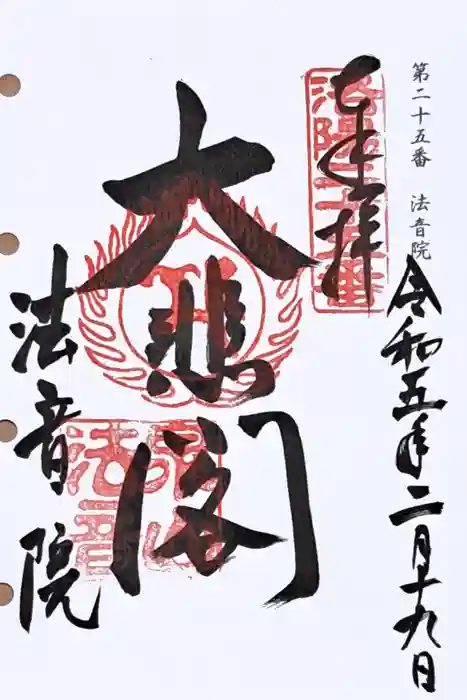 第二十五番 法音院
令和五年二月十九日
奉拝
洛陽二十五番
大悲閣
法音院
泉山
法音